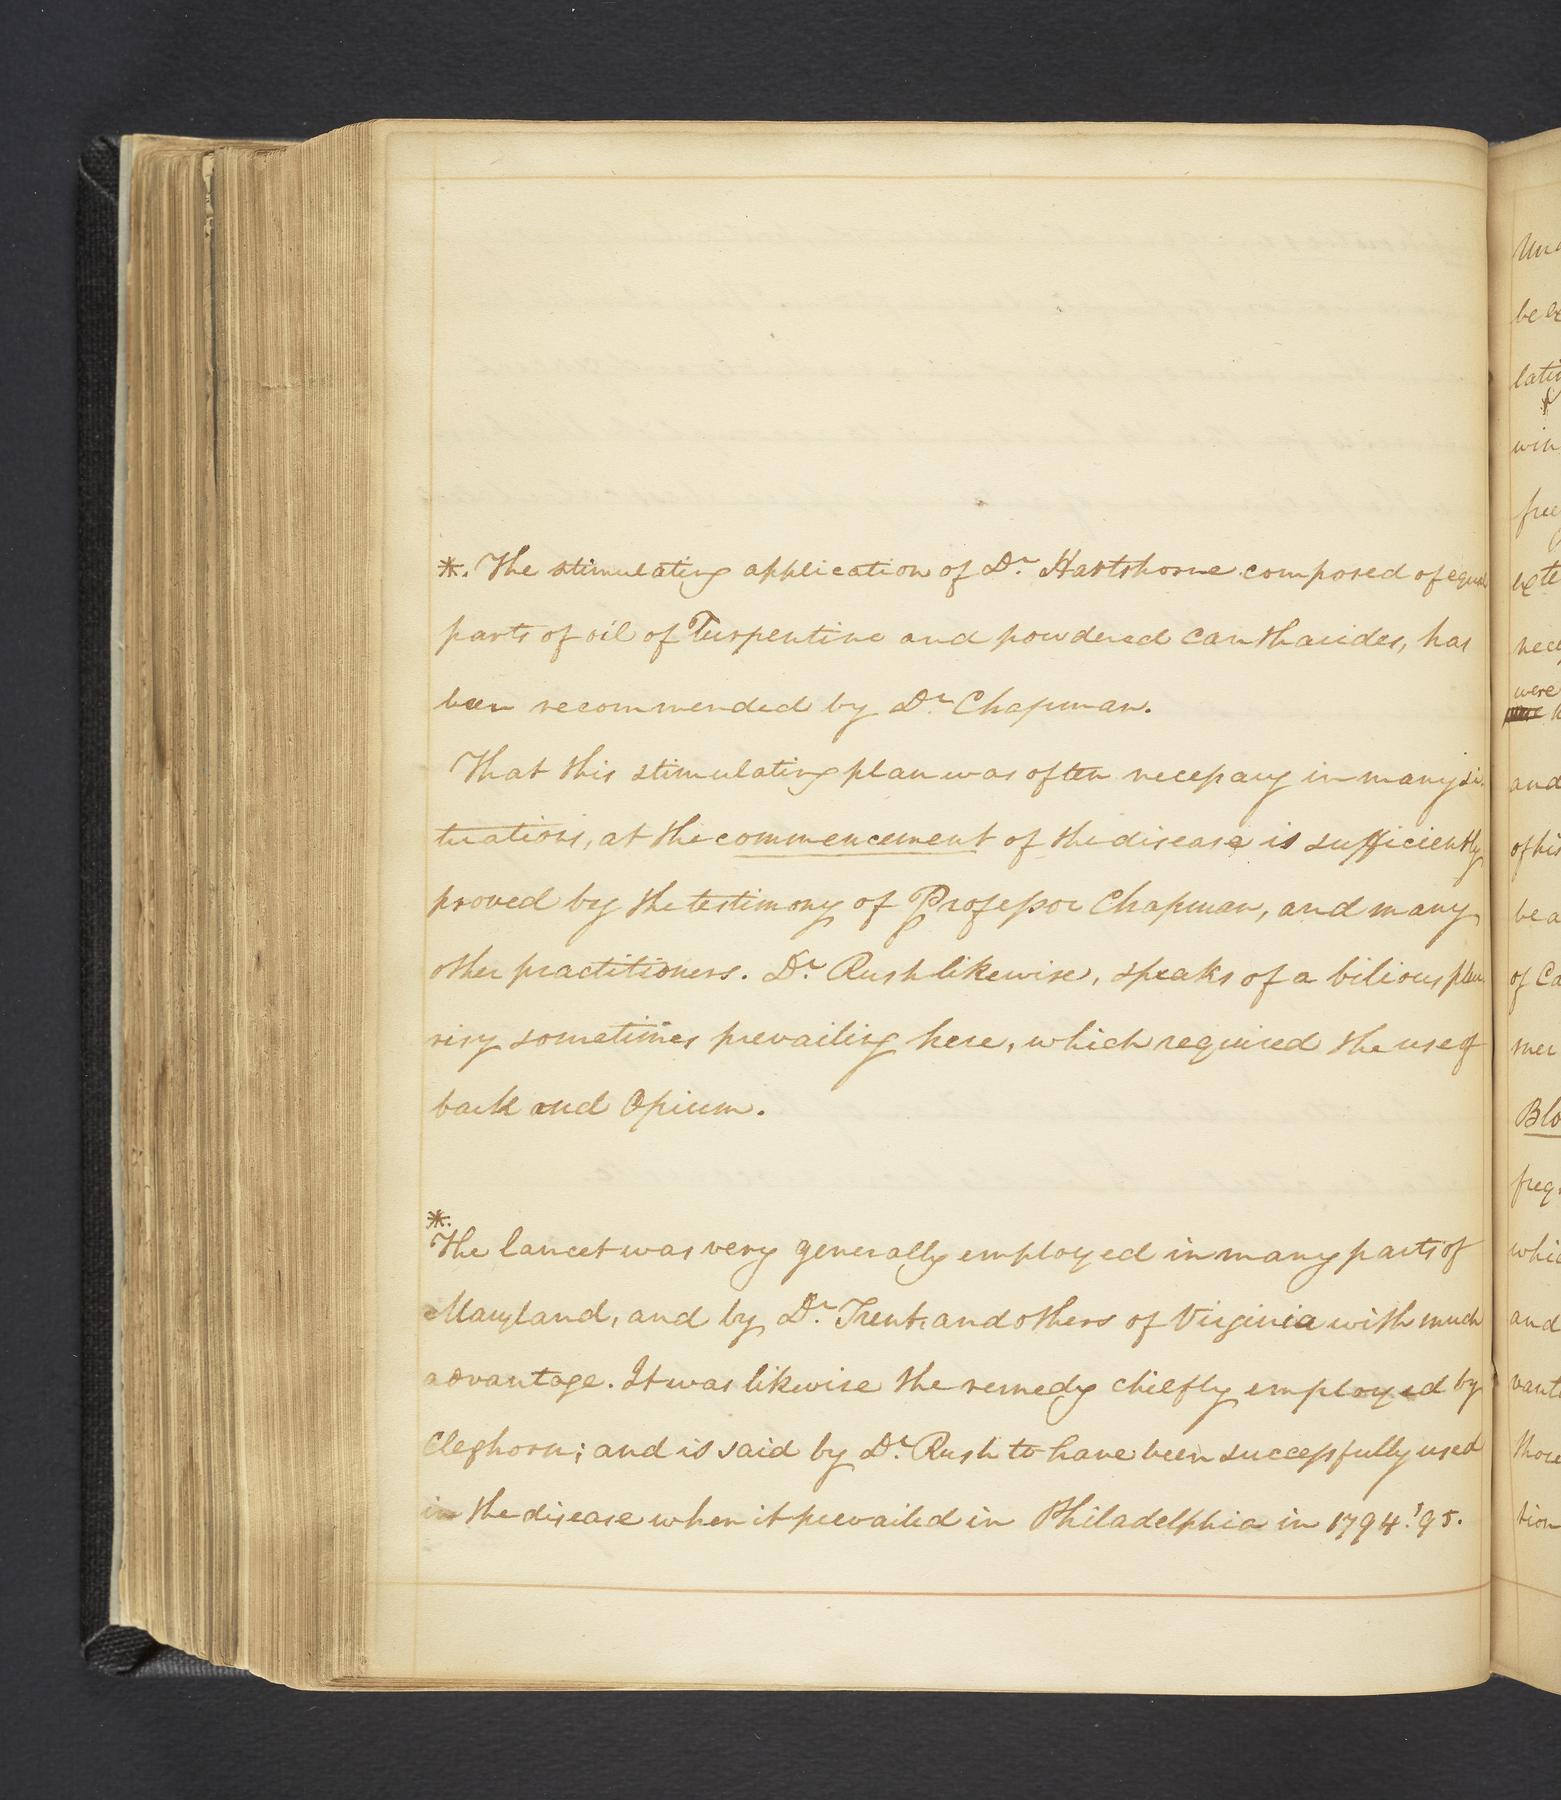 *. The stimulating application of Dr. Hartshorne composed of equal
parts of oil of Turpentine and powdered Cantharides, has
been recommended by Dr. Chapman.
That this stimulating plan was often necessary in many si-
tuations, at the commencement of the disease is sufficiently
proved by the testimony of Professor Chapman, and many
other practitioners. Dr. Rush likewise, speaks of a bilious pleu
risy sometimes prevailing here, which required the use of
bark and Opium.
*.
The lancet was very generally employed in many parts of
Maryland, and by Dr. Trent, and others of Virginia with much
advantage. It was likewise the remedy chiefly employed by
Cleghorn; and is said by Dr. Rush to have been successfully used
in the disease when it prevailed in Philadelphia in 1794.'95.
be
win
free
were
and
of his
be a
of Ca
mer
Blo
freq
whic
and
vant
those
tion